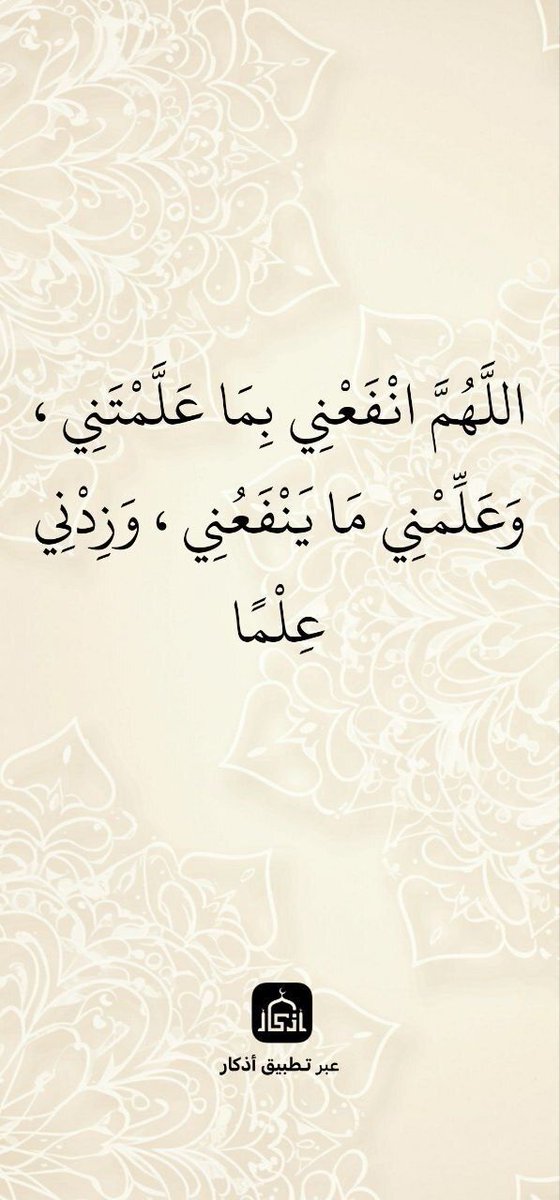 اللَّهُمَّ انْفَعْنِي بِمَا عَلَّمْتَنِي ،
وَعَلِّمْنِي مَا يَنْفَعُنِي ، وَزِدْنِي
عِلْمًا
أذكار
عبر تطبيق أذكار